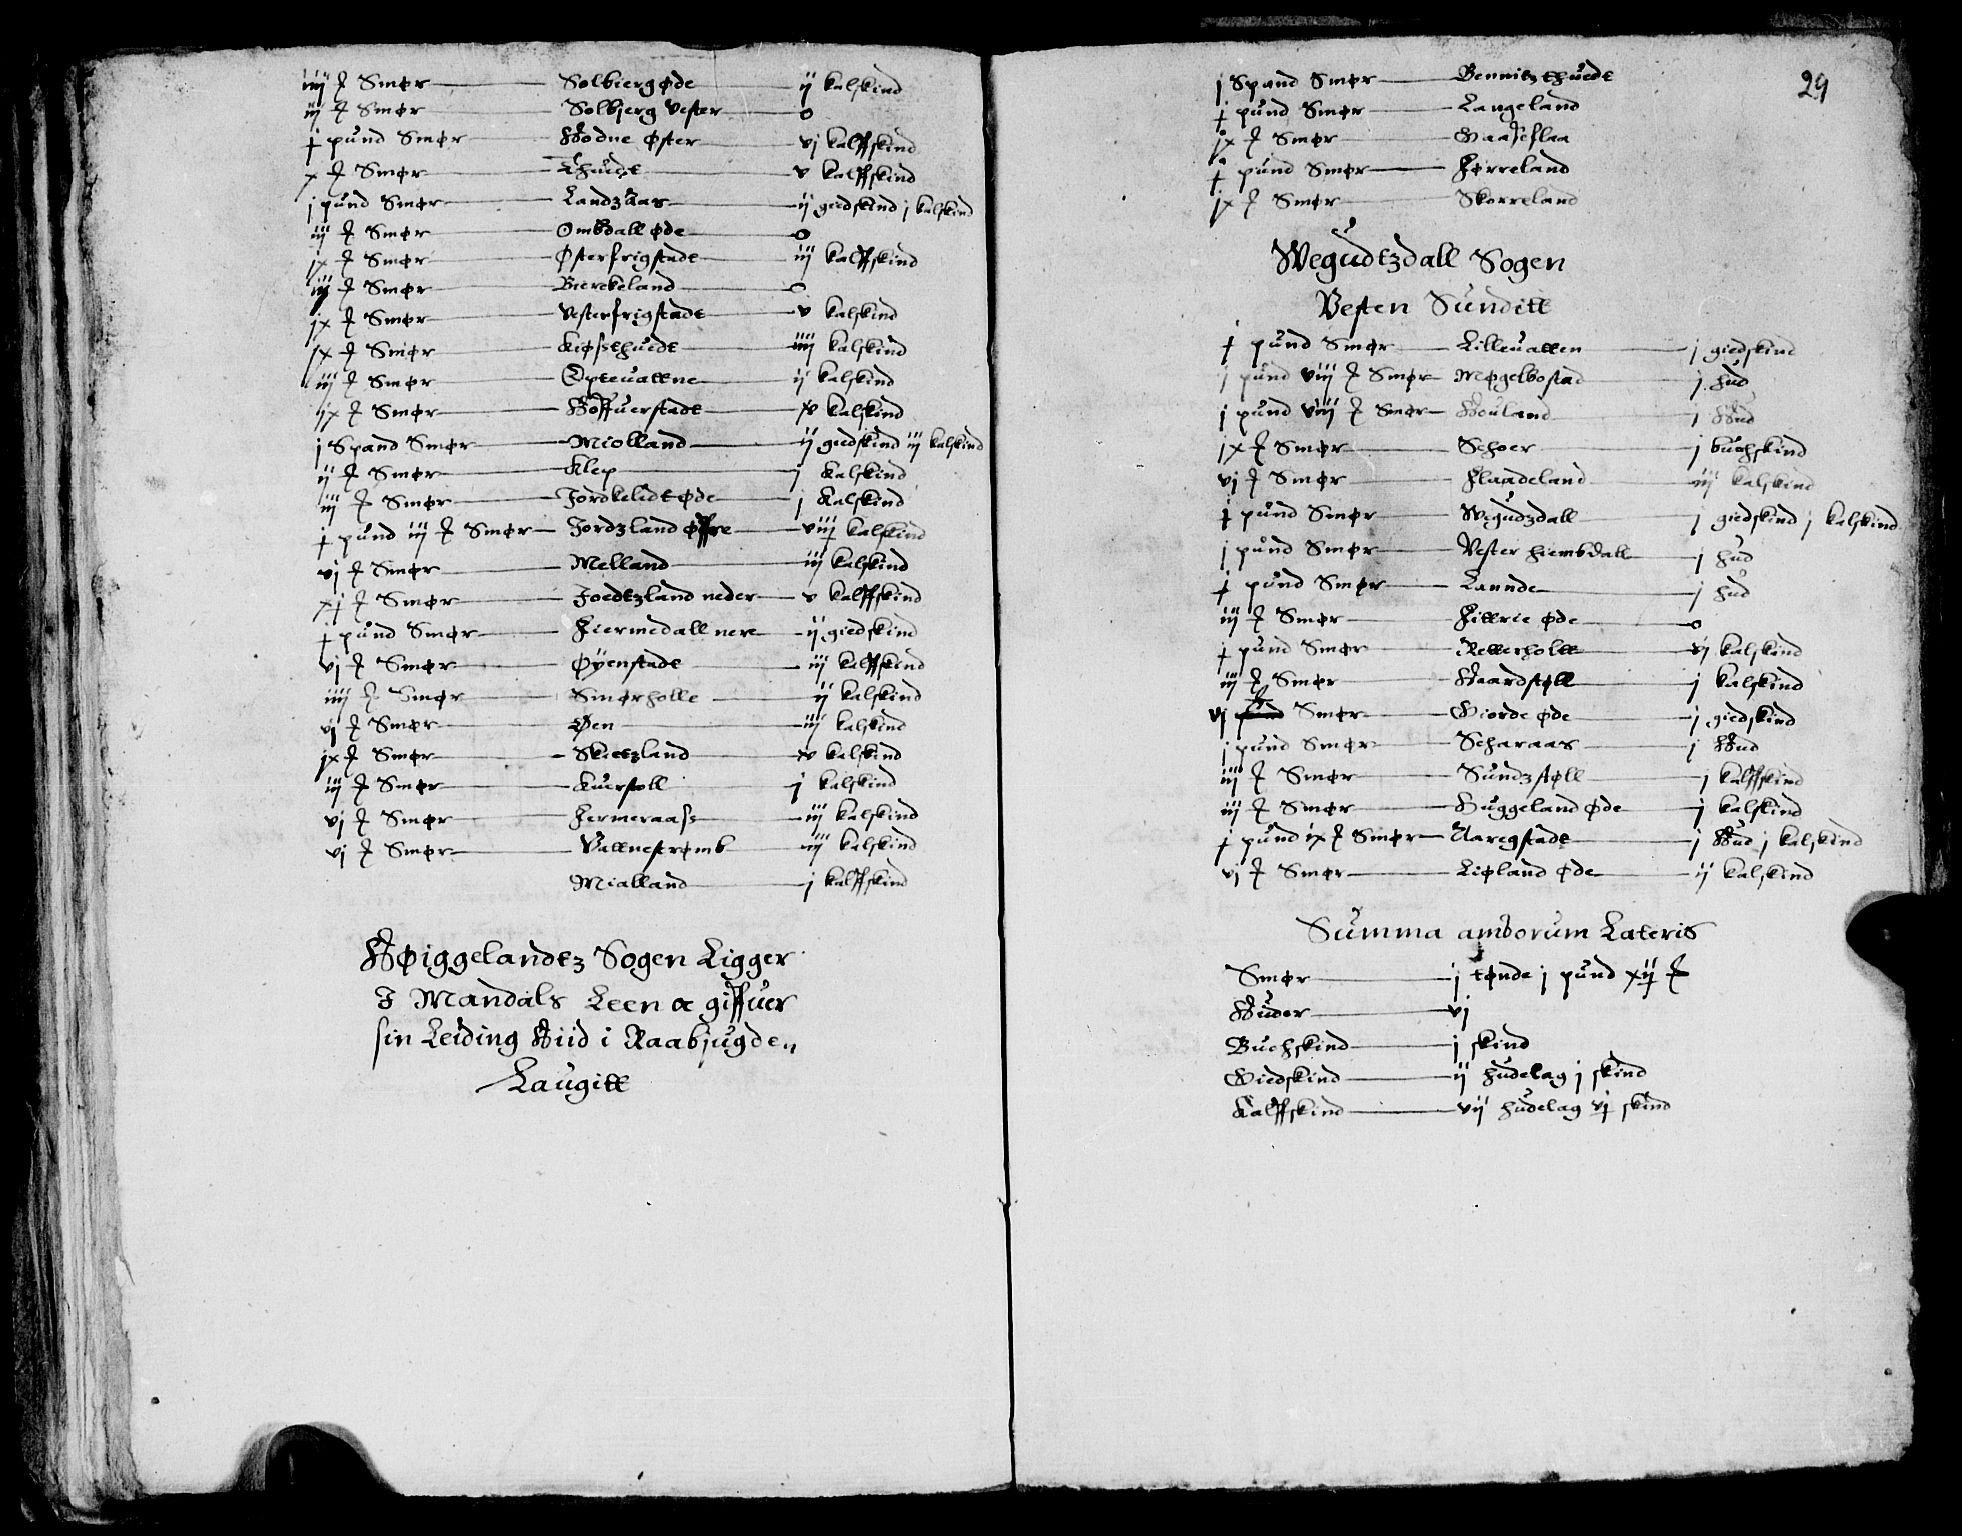 iiij ℔ Smør — Solbierg øde — ij kalskind
iij ℔ Smør — Solbjerg Vester — o
j pund Smør — Hodne Øster — vj kalffskind
x ℔ Smør — Thuedt — v kalffskind
j pund Smør — Landzaas — ij giedskind j kalskind
iij ℔ Smør — Ombdall øde — o
jx ℔ Smør — Østerfrigstade — iij kalffskind
iij ℔ Smør — Bierckeland — o
jx ℔ Smør — Vesterfrigstade — v kalskind
jx ℔ Smør — Kiøsthuedt — iiij kalskind
iij ℔ Smør — Opteuattne — ij kalskind
jx ℔ Smør — Hoffuerstade — v kalskind
j Spand Smør — Miolland — ij giedskind iij kalskind
ij ℔ Smør — Klep — j Kalskind
iij ℔ Smør — Jordkelidt øde — j Kalskind
j pund iij ℔ Smør — Jordzland øffre — viij kalskind
vj ℔ Smør — Melland — iij kalskind
xj ℔ Smør — Joedtzland neder — v kalffskind
j pund Smør — Fiermedall nere — ij giedskind
vj ℔ Smør — Øÿenstade — iij kalffskind
iiij ℔ Smør — Smørholle — ij kalskind
vj ℔ Smør — Øen — iij kalskind
jx ℔ Smør — Skietzland — v kalskind
iij ℔ Smør — Kuerstoll — j kalskind
vj ℔ Smør — Fermeraass — iij kalskind
vj ℔ Smør — Vallnestrømb — iij kalskind
Mialland — j kalffskind
Høiggelandtz Sogen Ligger
I Mandals Leen oc giffuer
sin Leiding Hiid i Raabjugden
Laugitt
29
j Spand Smør — Bennitzthuedt
j pund Smør — Langeland
jx ℔ Smør — Gaaseflaa
j pund Smør — Førreland
jx ℔ Smør — Skorreland
Wegudtzdall Sogen
Vesten Sunditt
j pund Smør — Lilleuatten — j giedskind
j pund viij ℔ Smør — Møgelbostad — j hud
j pund viij ℔ Smør — Houland — j Hud
jx ℔ Smør — Schoer — j buchskind
vj ℔ Smør — Flaadeland — iij kalskind
j pund Smør — Wegudzdall — j giedskind j kalskind
j pund Smør — Vester hiembdall — j hud
j pund Smør — Lannde — j hud
iij ℔ Smør — Fittrie øde — o
j pund Smør — Retterholtt — vj kalskind
iij ℔ Smør — Haardstøll — j kalskind
vj ℔ Smør — Giorde øde — j giedskind
j pund Smør — Scharaas — j Hud
iij ℔ Smør — Sundzstøll — j kalffskind
iij ℔ Smør — Huggeland øde — j kalskind
j pund ix ℔ Smør — Aaregstade — j Hud j kalskind
vj ℔ Smør — Liøland øde — ij kalskind
Summa amborum Lateris
Smør — j tønde j pund xij ℔
Huder — vj
Buchskind — j skind
Giedskind — ij hudelag j skind
Kalffskind — vij hudelag vj skind